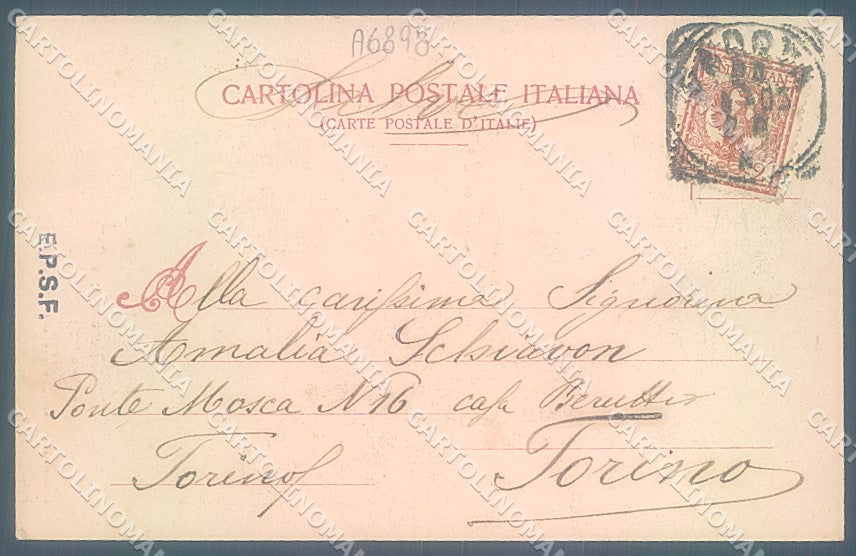 A6898
CARTOLINA POSTALE ITALIANA
(CARTE POSTALE D'ITALIE)
E.P.S.F.
Alla carissima Signorina
Amalia Schiavon
Ponte Mosca N 16 casa
Torino
Torino
CARTOLINOMANIA